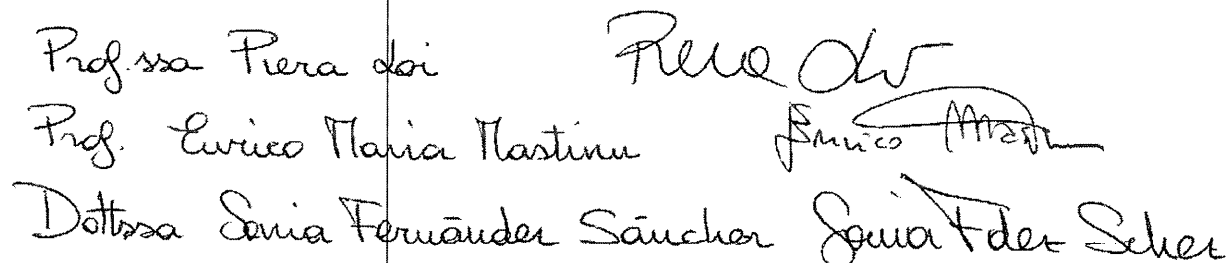 Prof.ssa Piera Loi Piera Loi
Prof. Enrico Maria Mastinu Enrico Mastinu
Dott.ssa Sonia Fernández Sánchez Sonia Fdez Schez